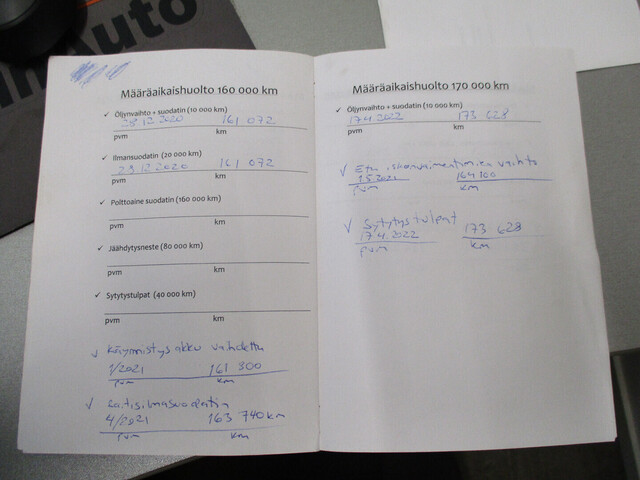 Auto
Määräaikaishuolto 160 000 km
✓ Öljynvaihto + suodatin (10 000 km)
28.12.2020 161 072
pvm km
✓ Ilmansuodatin (20 000 km)
161 072
pvm km
✓ Polttoaine suodatin (160 000 km)
pvm km
✓ Jäähdytysneste (80 000 km)
pvm km
✓ Sytytystulpat (40 000 km)
pvm km
✓ Käynnistysakku vaihdettu
1/2021 161 300
pvm km
✓ Raitisilmasuodatin
4/2021 163 740 km
pvm km
Määräaikaishuolto 170 000 km
✓ Öljynvaihto + suodatin (10 000 km)
17.4.2022 173 628
pvm km
✓ Etu iskunvaimentimien vaihto
1.5.2021 164 100
pvm km
✓ Sytytystulpat
17.4.2022 173 628
pvm km